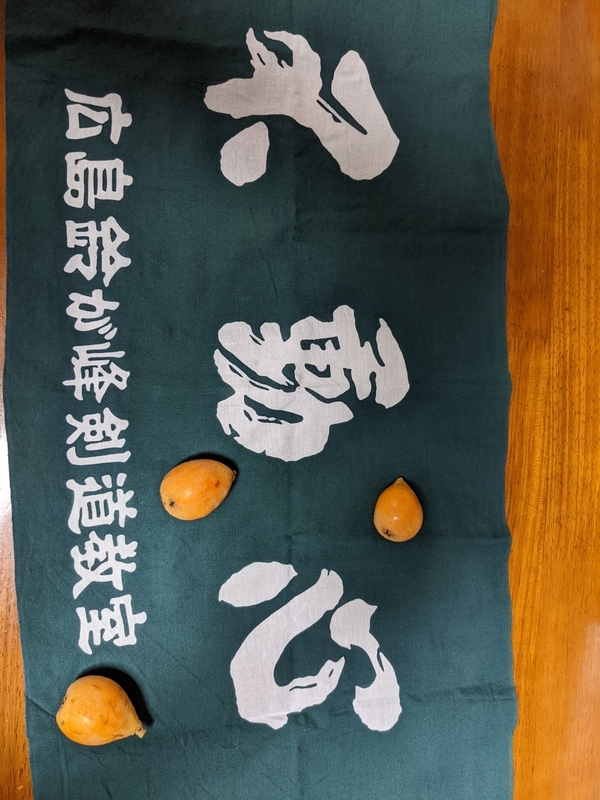 不動心
広島鈴が峰剣道教室